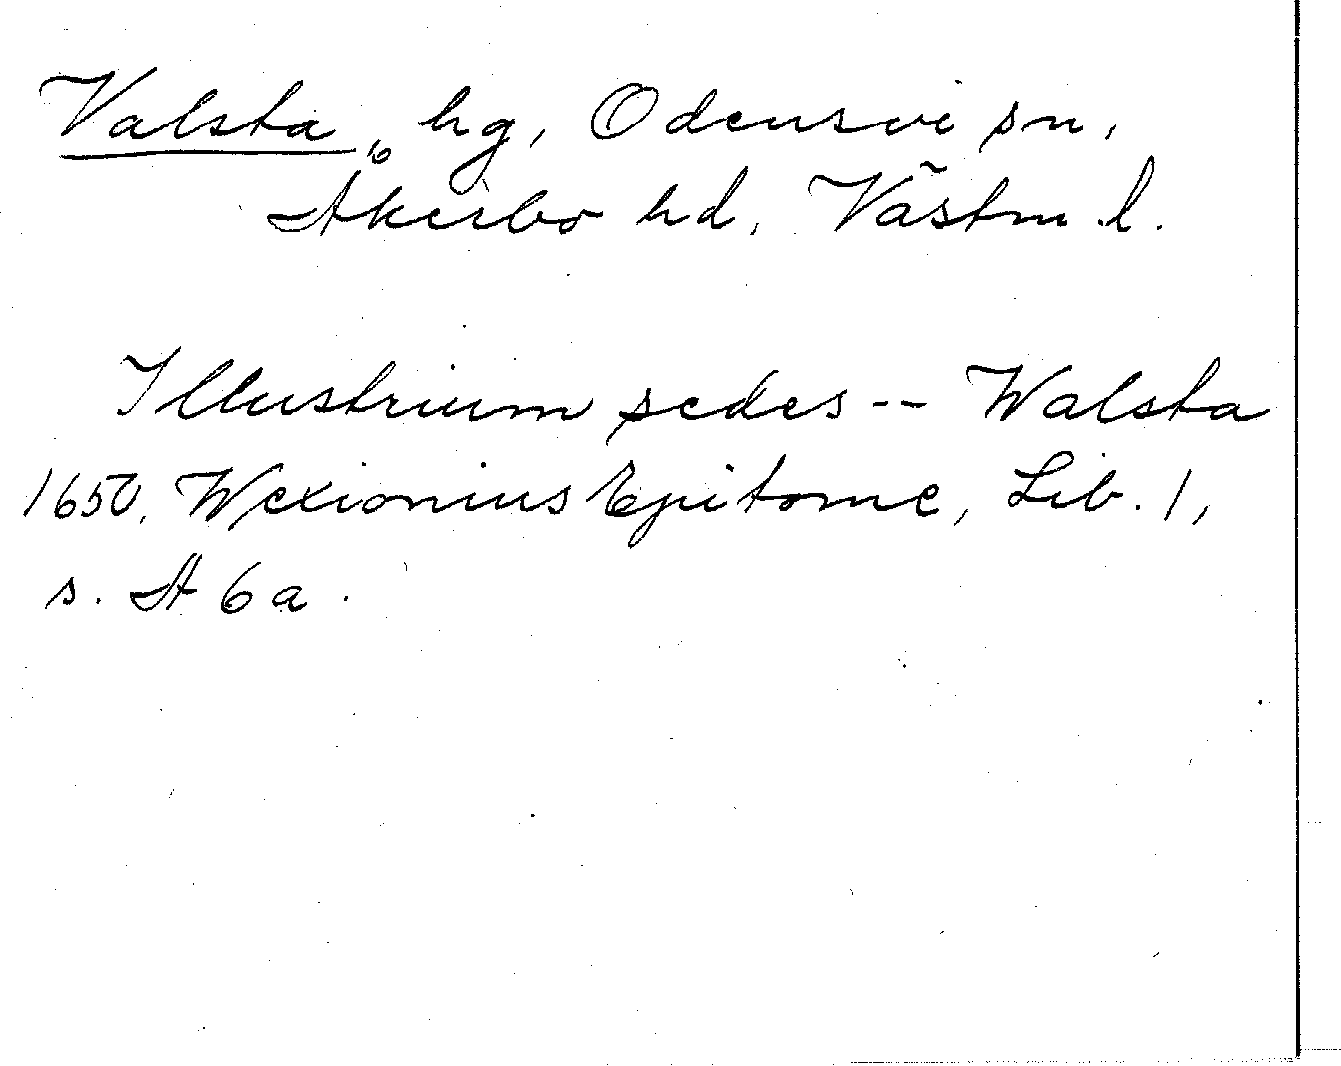 Valsta, hg, Odensvi sn,
Åkerbo hd, Västm. l.
Illustrium sedes -- Walsta
1650, Wexionius Epitome, Lib. 1,
s. A 6a.